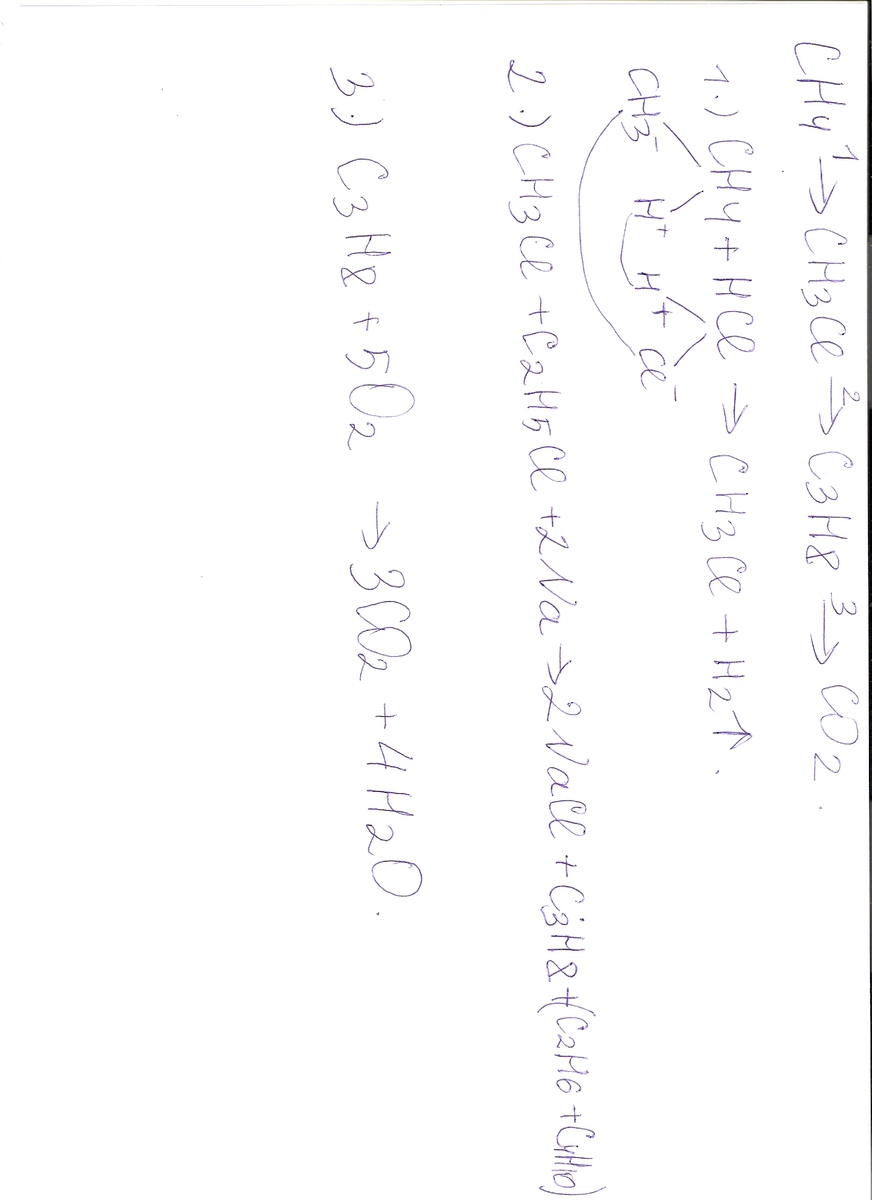 CH4 1→ CH3Cl 2→ C3H8 3→ CO2.
1.) CH4 + HCl → CH3Cl + H2↑.
CH3- H+ H+ Cl-
2.) CH3Cl + C2H5Cl + 2Na → 2NaCl + C3H8 + (C2H6 + C4H10)
3.) C3H8 + 5O2 → 3CO2 + 4H2O.